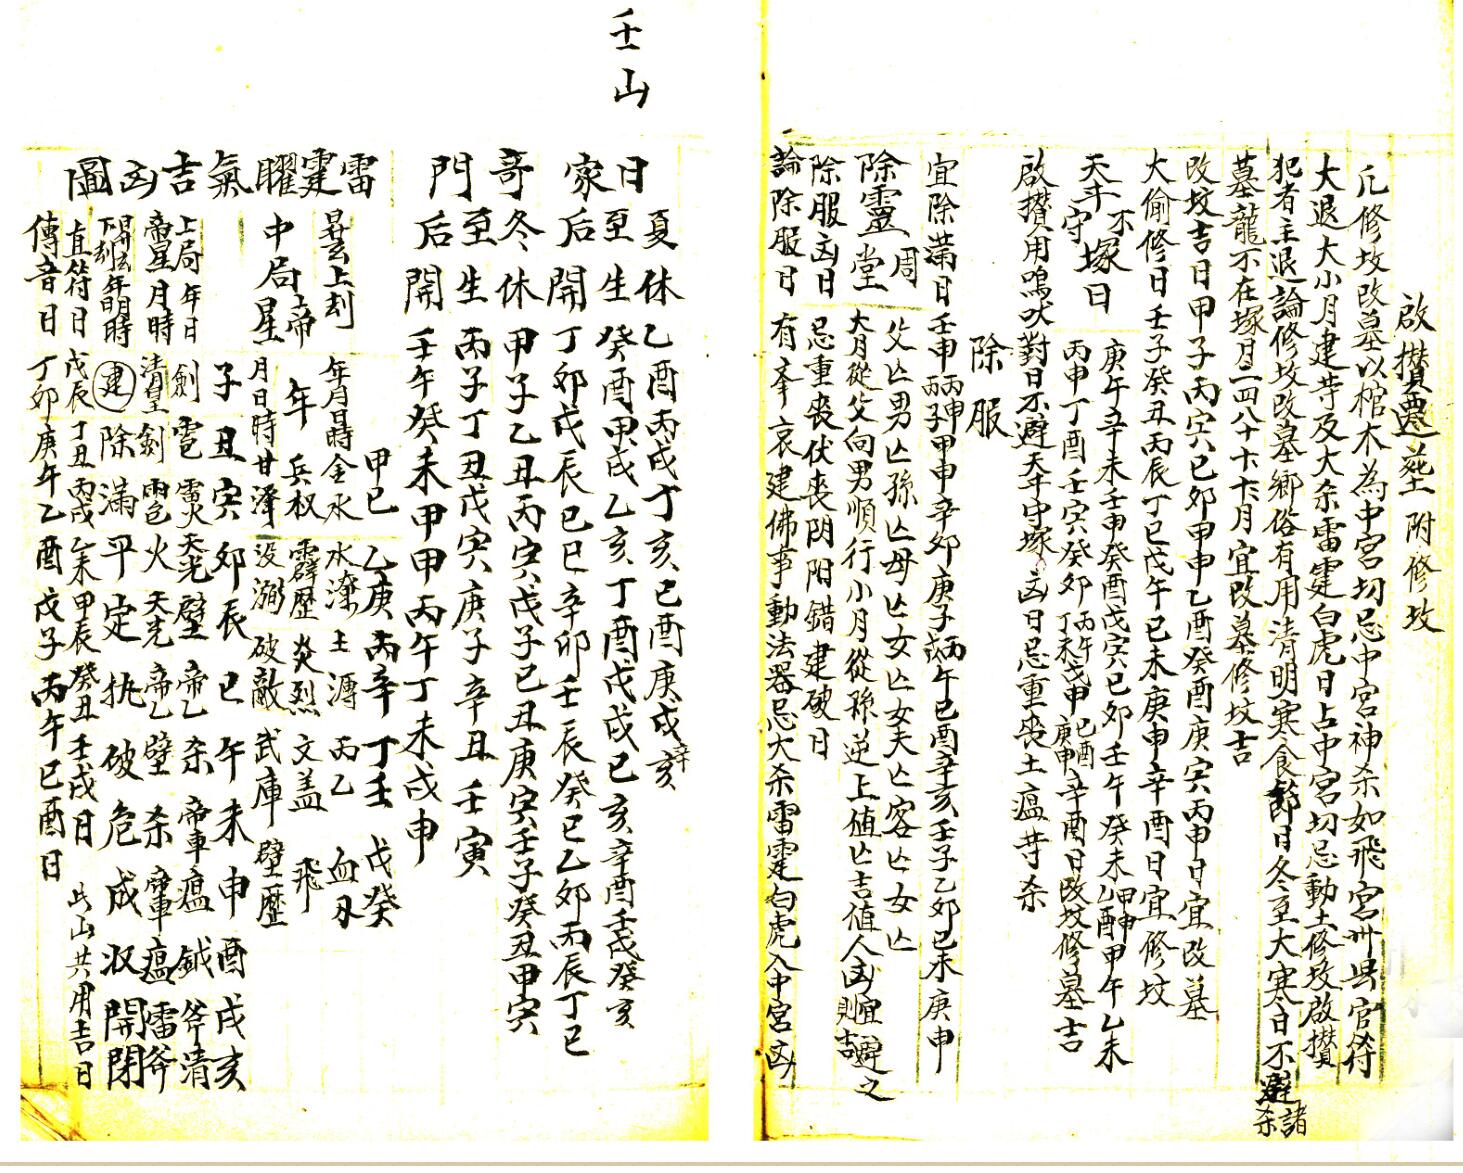 啟攢遷塟附修坟
凢修坟改墓以棺木為中宮切忌中宮神杀如飛宮州县官符
大退大小月建䓁及大杀雷霆白虎日占中宮切忌動土修坟啟攢
犯者主退論修坟改墓鄉俗有用清明寒食節日冬至大寒日不避諸杀
墓龍不在塚月二四八十十十月宜改墓修坟吉
改坟吉日甲子丙寅巳卯甲申乙酉癸酉庚寅丙申日宜改墓
大偷修日壬子癸丑丙辰丁巳戊午巳未庚申辛酉日宜修坟
天牛不守塚日
庚午辛未壬申癸酉戊寅巳卯壬午癸未甲申乙酉甲午乙未
丙申丁酉壬寅癸卯丙午丁未戊申巳酉庚申辛酉日改坟修墓吉
啟攢用鳴吠對日不避天牛守塚凶日忌重喪土瘟䓁杀
除服
宜除滿日壬申丙申丙子甲申辛卯庚子丙午戊戌巳酉辛亥壬子乙卯巳未庚申
除靈周堂
父亡男亡孫亡母亡女亡女夫亡客亡女亡
大月從父向男順行小月從孫逆上值亡吉值人凶宜避之則吉
除服凶日 忌重喪伏喪阴阳錯建破日
論除服日 有孝哀建佛事動法器忌大杀雷霆白虎入中宮凶
壬山
日家哥門
夏至后
休 乙酉丙戌丁亥巳酉庚戌辛亥
生 癸酉甲戌乙亥丁酉戊戌巳亥辛酉壬戌癸亥
開 丁卯戊辰巳巳辛卯壬辰癸巳乙卯丙辰丁巳
冬至后
休 甲子乙丑丙寅戊子巳丑庚寅壬子癸丑甲寅
生 丙子丁丑戊寅庚子辛丑壬寅
開 壬午癸未甲申丙午丁未戊申
雷霆曜氣吉凶圖
甲巳 乙庚 丙辛 丁壬 戊癸
昇玄上刻 年月日時 金水 水潦 土溽 丙乙 血刃
中局上帝星 年 兵权 霹歷 炎烈 文盖 飛
月日時 甘澤 没溺 破敵 武庫 壁歷
子丑寅卯辰巳午未申酉戌亥
上局年日 劍雹電火天光壁帝乙杀帝車瘟鉞斧清
帝星月時 清望劍雨雹火天光帝乙壁杀帝車瘟潘斧
建除滿平定执破危成收開閉
直符日 戊辰丁丑丙戌乙未甲辰癸丑壬戌日
傳音日 丁卯庚午乙酉戊子丙午巳酉日
此山共用吉日